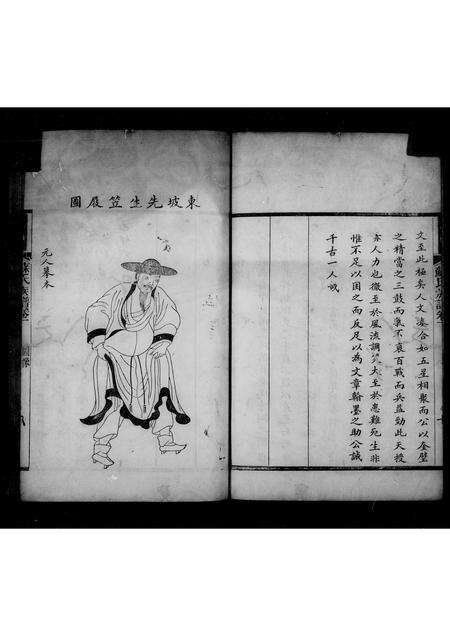 文至此極矣人文湊合如五星相聚而公以奎璧
之精當之三鼓而氣不衰百戰而兵益勁此天授
亦人力也微至於風流調笑大至於患難死生非
惟不足以困之而反足以為文章翰墨之助公誠
千古一人哉
東坡先生笠屐圖
元人摹本
圖像